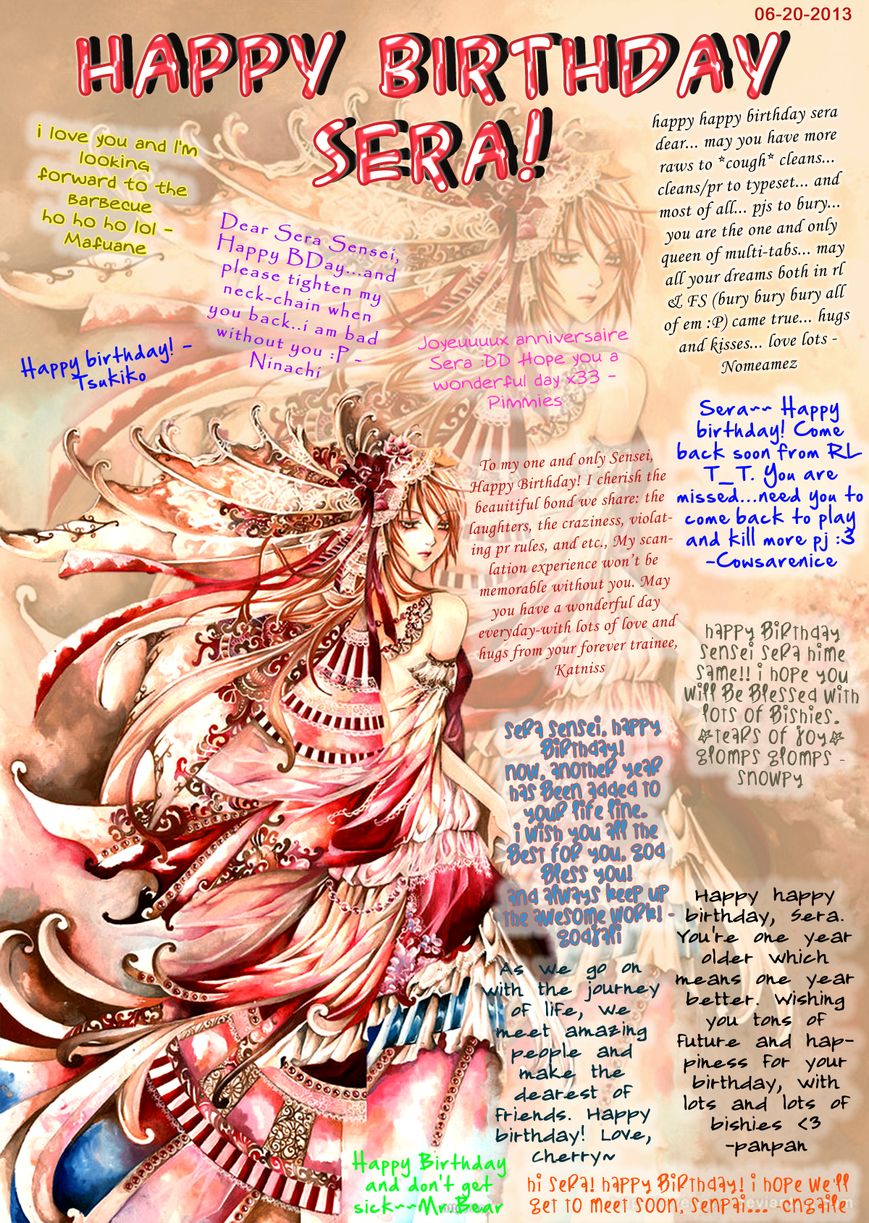 06-20-2013
HAPPY BIRTHDAY
SERA!
i love you and I'm
looking
forward to the
Barbecue
ho ho ho lol -
Mafuane
happy happy birthday sera
dear... may you have more
raws to *cough* cleans...
cleans/pr to typeset... and
most of all... pjs to bury...
you are the one and only
queen of multi-tabs... may
all your dreams both in rl
& FS (bury bury bury all
of em :P) came true... hugs
and kisses... love lots -
Nomeamez
Dear Sera Sensei,
Happy BDay...and
please tighten my
neck-chain when
you back..i am bad
without you :P -
Ninachi
Happy birthday! -
Tsukiko
Joyeuuuux anniversaire
Sera :DD Hope you a
wonderful day x33 -
Pimmies
Sera~~ Happy
birthday! Come
back soon from RL
T_T. You are
missed...need you to
come back to play
and kill more pj :3
-Cowsarenice
To my one and only Sensei,
Happy Birthday! I cherish the
beauitiful bond we share: the
laughters, the craziness, violat-
ing pr rules, and etc., My scan-
lation experience won't be
memorable without you. May
you have a wonderful day
everyday-with lots of love and
hugs from your forever trainee,
Katniss
Happy Birthday
Sensei Sera hime
same!! i hope you
will Be Blessed with
lots of Bishies.
*tears of joy*
glomps glomps -
snowpy
Sera Sensei, Happy
Birthday!
Now, another year
has Been added to
your life line.
i wish you all the
Best for you. God
Bless you!
and always keep up
the awesome work! -
Godzali
Happy happy
birthday, Sera.
You're one year
older which
means one year
better. Wishing
you tons of
future and hap-
piness for your
birthday, with
lots and lots of
bishies <3
-panpan
As we go on
with the journey
of life, we
meet amazing
people and
make the
dearest of
friends. Happy
birthday! Love,
Cherry~
Happy Birthday
and don't get
sick~~Mr.Bear
hi Sera! Happy Birthday! i hope we'll
get to meet soon, senpai... - cngaile